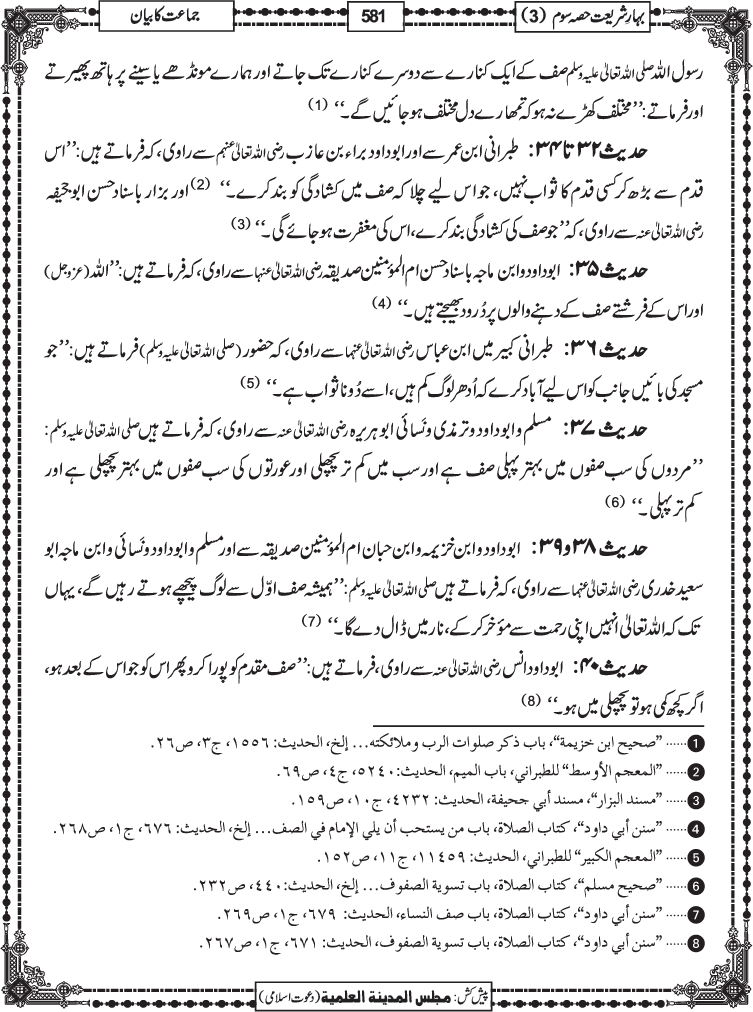 بہار شریعت حصہ سوم (3)
581
جماعت کا بیان
رسول اللہ صلی اللہ تعالیٰ علیہ وسلم صف کے ایک کنارے سے دوسرے کنارے تک جاتے اور ہمارے مونڈھے یا سینے پر ہاتھ پھیرتے
اور فرماتے: ’’مختلف کھڑے نہ ہو کہ تمھارے دل مختلف ہو جائیں گے۔‘‘ (1)
حدیث ۳۲ تا ۳۴: طبرانی ابن عمر سے اور ابوداود براء بن عازب رضی اللہ تعالیٰ عنہم سے راوی، کہ فرماتے ہیں: ’’اس
قدم سے بڑھ کر کسی قدم کا ثواب نہیں، جو اس لیے چلا کہ صف میں کشادگی کو بند کرے۔‘‘ (2) اور بزار باسناد حسن ابوجحیفہ
رضی اللہ تعالیٰ عنہ سے راوی، کہ ’’جو صف کی کشادگی بند کرے، اس کی مغفرت ہو جائے گی۔‘‘ (3)
حدیث ۳۵: ابوداود و ابن ماجہ باسناد حسن ام المؤمنین صدیقہ رضی اللہ تعالیٰ عنہا سے راوی، کہ فرماتے ہیں: ’’اللہ (عزوجل)
اور اس کے فرشتے صف کے دہنے والوں پر دُرود بھیجتے ہیں۔‘‘ (4)
حدیث ۳۶: طبرانی کبیر میں ابن عباس رضی اللہ تعالیٰ عنہما سے راوی، کہ حضور (صلی اللہ تعالیٰ علیہ وسلم) فرماتے ہیں: ’’جو
مسجد کی بائیں جانب کو اس لیے آباد کرے کہ اُدھر لوگ کم ہیں، اسے دُونا ثواب ہے۔‘‘ (5)
حدیث ۳۷: مسلم و ابوداود و ترمذی و نَسائی ابوہریرہ رضی اللہ تعالیٰ عنہ سے راوی، کہ فرماتے ہیں صلی اللہ تعالیٰ علیہ وسلم:
’’مردوں کی سب صفوں میں بہتر پہلی صف ہے اور سب میں کم تر پچھلی اور عورتوں کی سب صفوں میں بہتر پچھلی ہے اور
کم تر پہلی۔‘‘ (6)
حدیث ۳۸ و ۳۹: ابوداود و ابن خزیمہ و ابن حبان ام المؤمنین صدیقہ سے اور مسلم و ابوداود و نَسائی و ابن ماجہ ابو
سعید خدری رضی اللہ تعالیٰ عنہما سے راوی، کہ فرماتے ہیں صلی اللہ تعالیٰ علیہ وسلم: ’’ہمیشہ صف اوّل سے لوگ پیچھے ہوتے رہیں گے، یہاں
تک کہ اللہ تعالیٰ انہیں اپنی رحمت سے مؤخر کرکے، نار میں ڈال دے گا۔‘‘ (7)
حدیث ۴۰: ابوداود انس رضی اللہ تعالیٰ عنہ سے راوی، فرماتے ہیں: ’’صف مقدم کو پورا کرو پھر اس کو جو اس کے بعد ہو،
اگر کچھ کمی ہو تو پچھلی میں ہو۔‘‘ (8)
1 ...... ”صحيح ابن خزيمة“، باب ذكر صلوات الرب وملائكته... إلخ، الحديث: ١٥٥٦، ج٣، ص٢٦.
2 ...... ”المعجم الأوسط“ للطبراني، باب الميم، الحديث: ٥٢٤٠، ج٤، ص٦٩.
3 ...... ”مسند البزار“، مسند أبي جحيفة، الحديث: ٤٢٣٢، ج١٠، ص١٥٩.
4 ...... ”سنن أبي داود“، كتاب الصلاة، باب من يستحب أن يلي الإمام في الصف... إلخ، الحديث: ٦٧٦، ج١، ص٢٦٨.
5 ...... ”المعجم الكبير“ للطبراني، الحديث: ١١٤٥٩، ج١١، ص١٥٢.
6 ...... ”صحيح مسلم“، كتاب الصلاة، باب تسوية الصفوف... إلخ، الحديث: ٤٤٠، ص٢٣٢.
7 ...... ”سنن أبي داود“، كتاب الصلاة، باب صف النساء، الحديث: ٦٧٩، ج١، ص٢٦٩.
8 ...... ”سنن أبي داود“، كتاب الصلاة، باب تسوية الصفوف، الحديث: ٦٧١، ج١، ص٢٦٧.
پیش کش: مجلس المدینة العلمیة (دعوت اسلامی)